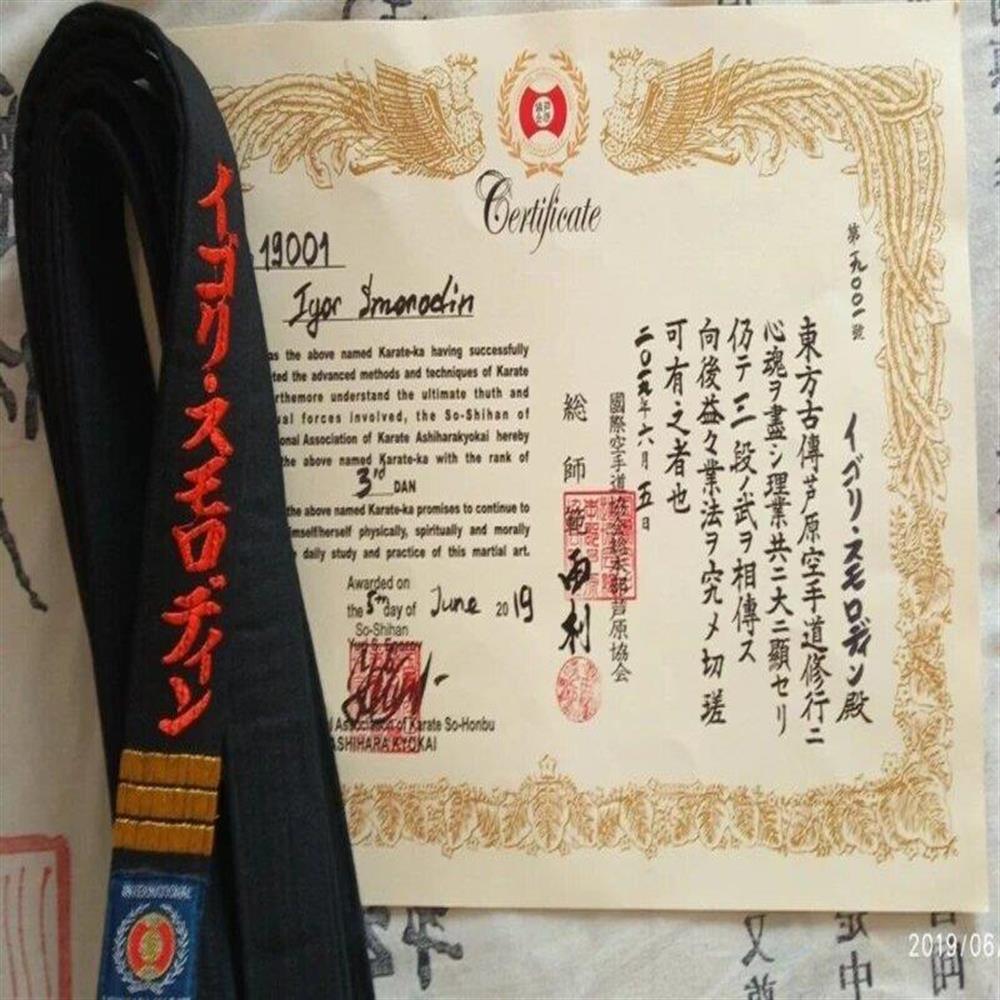 イゴリ・スモロディン
INTERNATIONAL
Certificate
19001
Igor Smorodin
as the above named Karate-ka having successfully
ted the advanced methods and techniques of Karate
rthemore understand the ultimate thuth and
al forces involved, the So-Shihan of
onal Association of Karate Ashiharakyokai hereby
the above named Karate-ka with the rank of
3rd DAN
the above named Karate-ka promises to continue to
imself/herself physically, spiritually and morally
daily study and practice of this martial art.
Awarded on
the 5th day of June 2019
So-Shihan
Yuri S.
l Association of Karate So-Honbu
ASHIHARA KYOKAI
第一九〇〇一號
イゴリ・スモロディン殿
東方古傳芦原空手道修行ニ
心魂ヲ盡シ理業共ニ大ニ顯セリ
仍テ三段ノ武ヲ相傳ス
向後益々業法ヲ究メ切瑳
可有之者也
二〇一九年六月五日
國際空手道協会総本部芦原協会
総師範
2019/06